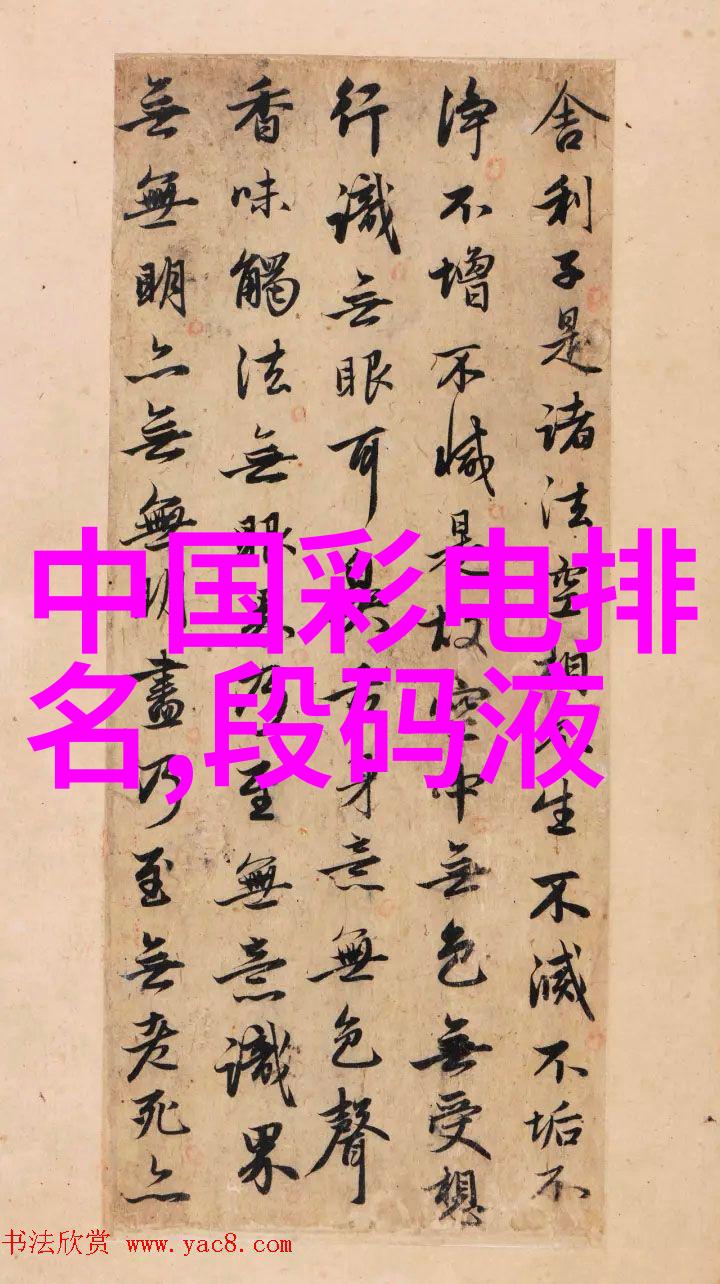 舍利子是諸法空相不生不滅不垢不
淨不增不減是故空中無色無受想
行識無眼耳鼻舌身意無色聲
香味觸法無眼界乃至無意識界
無無明亦無無明盡乃至無老死亦
中国彩电排
名,段码液
书法欣赏 www.yac8.com